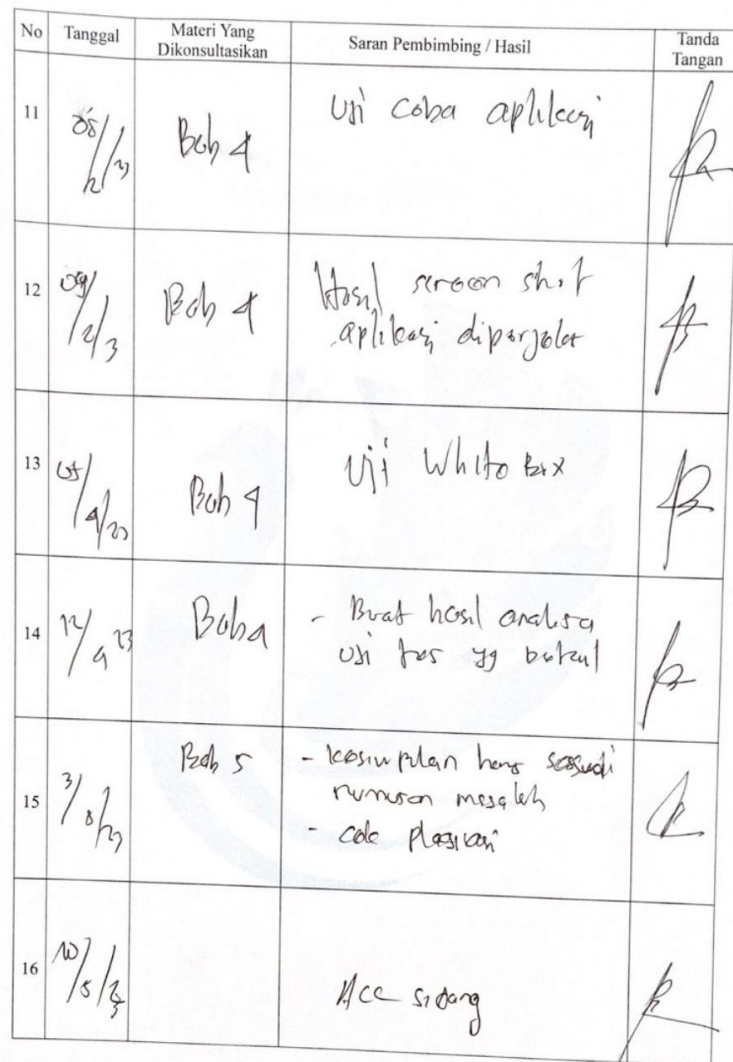 No Tanggal Materi Yang Dikonsultasikan Saran Pembimbing / Hasil Tanda Tangan
11 Bab 4 Uji coba aplikasi
12 09/2/3 Bab 4 Hasil screen shot
aplikasi diperjelas
13 Bab 4 Uji White Box
14 12/4 23 Bab 4 - Buat hasil analisa
uji tes yg betul
15 Bab 5 - kesimpulan harus sesuai
rumusan masalah
- cek plagiasi
16 10/5/23 Acc sidang